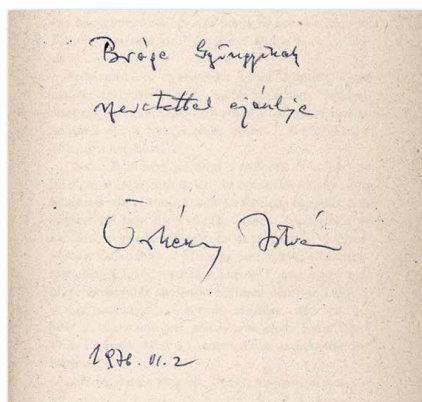 Bráge Gyöngyinek
szeretettel ajánlja
Örkény István
1976. VI. 2